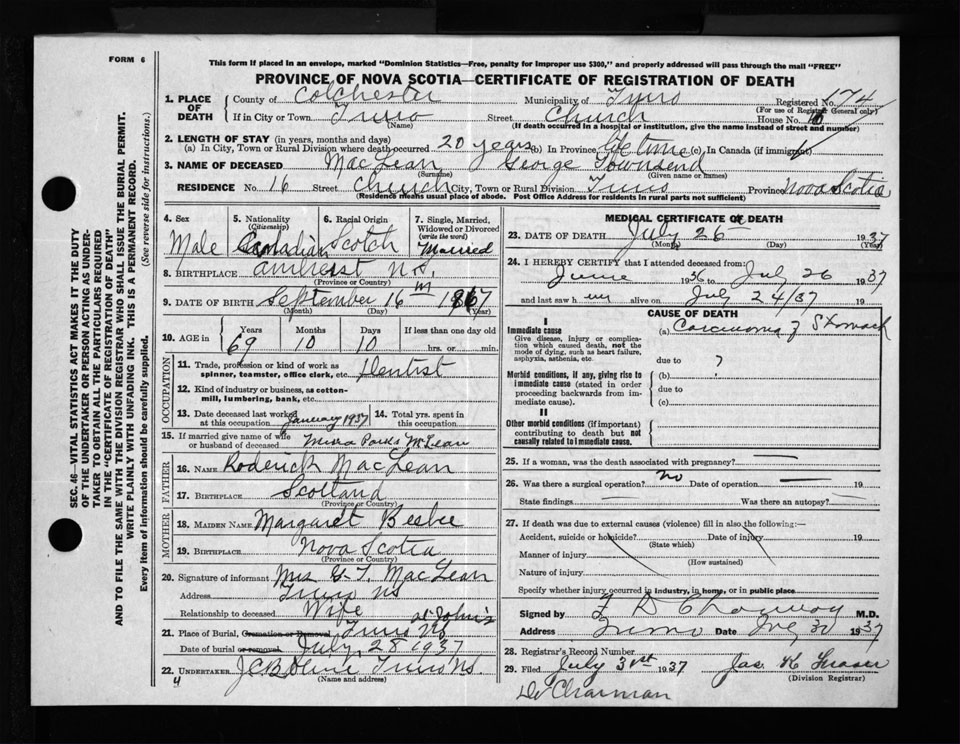 FORM 6
This form if placed in an envelope, marked "Dominion Statistics—Free, penalty for improper use $300," and properly addressed will pass through the mail "FREE"
PROVINCE OF NOVA SCOTIA—CERTIFICATE OF REGISTRATION OF DEATH
SEC. 46—VITAL STATISTICS ACT MAKES IT THE DUTY
OF THE UNDERTAKER OR PERSON ACTING AS UNDER-
TAKER TO OBTAIN ALL THE PARTICULARS REQUIRED
IN THE "CERTIFICATE OF REGISTRATION OF DEATH"
AND TO FILE THE SAME WITH THE DIVISION REGISTRAR WHO SHALL ISSUE THE BURIAL PERMIT.
WRITE PLAINLY WITH UNFADING INK. THIS IS A PERMANENT RECORD.
Every item of information should be carefully supplied. (See reverse side for instructions.)
1. PLACE OF DEATH
County of Colchester Municipality of Truro Registered No. 174
(For use of Registrar General only)
If in City or Town Truro Street Church House No. 16
(Name) (If death occurred in a hospital or institution, give the name instead of street and number)
2. LENGTH OF STAY (in years, months and days)
(a) In City, Town or Rural Division where death occurred 20 years (b) In Province life time (c) In Canada (if immigrant)
3. NAME OF DECEASED MacLean George Townsend
(Surname) (Given name or names)
RESIDENCE No. 16 Street Church City, Town or Rural Division Truro Province Nova Scotia
(Residence means usual place of abode. Post Office Address for residents in rural parts not sufficient)
4. Sex 5. Nationality 6. Racial Origin 7. Single, Married,
(Citizenship) Widowed or Divorced
(write the word)
Male Canadian Scotch Married
8. BIRTHPLACE Amherst N.S.
(Province or Country)
9. DATE OF BIRTH September 16 1867
(Month) (Day) (Year)
10. AGE in Years Months Days If less than one day old
69 10 10 hrs. or min.
OCCUPATION
11. Trade, profession or kind of work as
spinner, teamster, office clerk, etc. Dentist
12. Kind of industry or business, as cotton-
mill, lumbering, bank, etc.
13. Date deceased last worked
at this occupation January 1937
14. Total yrs. spent in
this occupation
15. If married give name of wife
or husband of deceased Parks McLean
FATHER
16. NAME Roderick MacLean
17. BIRTHPLACE Scotland
(Province or Country)
MOTHER
18. MAIDEN NAME Margaret Beebe
19. BIRTHPLACE Nova Scotia
(Province or Country)
20. Signature of informant Mrs G. T. MacLean
Address Truro NS
Relationship to deceased Wife
21. Place of Burial, Cremation or Removal Truro NS St John's
Date of burial or removal July 28 1937
22. UNDERTAKER Truro N.S.
(Name and address)
4
MEDICAL CERTIFICATE OF DEATH
23. DATE OF DEATH July 26 1937
(Month) (Day) (Year)
24. I HEREBY CERTIFY that I attended deceased from
June 1936 to July 26 1937
and last saw h im alive on July 24/37 19
CAUSE OF DEATH
I
Immediate cause (a) Carcinoma of Stomach
Give disease, injury or complica-
tion which caused death, not the
mode of dying, such as heart failure,
asphyxia, asthenia, etc.
due to ?
Morbid conditions, if any, giving rise to
immediate cause (stated in order
proceeding backwards from im-
mediate cause).
(b)
due to
(c)
II
Other morbid conditions (if important)
contributing to death but not
causally related to immediate cause.
25. If a woman, was the death associated with pregnancy?
26. Was there a surgical operation? no Date of operation 19
State findings Was there an autopsy?
27. If death was due to external causes (violence) fill in also the following:—
Accident, suicide or homicide? Date of injury 19
(State which)
Manner of injury
(How sustained)
Nature of injury
Specify whether injury occurred in industry, in home, or in public place
Signed by M.D.
Address Truro Date July 30 1937
28. Registrar's Record Number
29. Filed July 31st 1937 Jas. H. Fraser
(Division Registrar)
Dr Charman